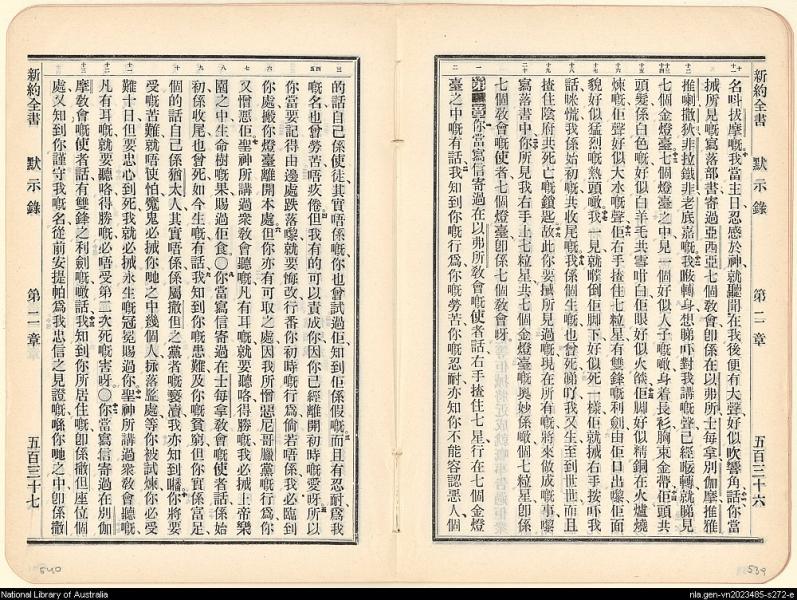 新約全書 默示錄 第二章 五百三十六
名呌拔摩嘅我當主日忍感於神就聽聞在我後便有大聲好似吹響角話你當
將所見嘅寫落部書寄過亞西亞七個敎會卽係在以弗所士每拿別伽摩推雅
推喇撒狄非拉鐵非老底嘉嘅我
七個金燈臺七個燈臺之中見一個好似人子嘅身着長衫胸束金帶佢頭共
頭髮係白色嘅好似白羊毛共雪咁白佢眼好似火燄佢脚好似精銅在火爐燒
煉嘅佢聲好似大水嘅聲佢右手揸住七粒星有雙鋒嘅利劍由佢口出嚟佢面
貌好似猛烈嘅熱頭噉我一見就㬹倒佢脚下好似死一樣佢就將右手按吓我
話咪慌我係始初嘅共收尾嘅我係個生嘅也曾死睇吖我又生至到世世而且
揸住陰府共死亡嘅鎖匙故此你要將所見過嘅現在所有嘅將來做成嘅事嚟
寫落書中你所見我右手上七粒星共七個金燈臺嘅奧妙係噉個七粒星卽係
七個敎會嘅使者七個燈臺卽係七個敎會呀
你當寫信寄過在以弗所敎會嘅使者話右手揸住七星行在七個金燈
臺之中嘅有話我知到你嘅行爲你嘅勞苦你嘅忍耐亦知你不能容認惡人個
的話自己係使徒其實唔係嘅你也曾試過佢知到佢係假嘅而且有忍耐爲我
嘅名也曾勞苦唔疚倦但我有的可以責成你因你已經離開初時嘅愛呀所以
你當要記得由邊處跌落嚟就要悔改行番你初時嘅行爲倘若唔係我必臨到
你處搬你燈臺離開本處但你亦有可取之處因我所憎惡尼哥臘黨嘅行爲你
又憎惡佢聖神所講過衆敎會聽嘅凡有耳嘅就要聽咯得勝嘅我必將上帝樂
園之中生命樹嘅果賜過佢食〇你當寫信寄過在士每拿敎會嘅使者話係始
初係收尾也曾死如今生嘅有話我知到你嘅患難及你嘅貧窮但你實係富足
個的話自己係猶太人其實唔係係屬撒但之黨者嘅褻瀆我亦知到嚹你將要
受嘅苦難就唔使怕魔鬼必將你哋之中幾個人揼落監處等你被試煉你必受
難十日但要忠心到死我就必將永生嘅冠冕賜過你聖神所講過衆敎會聽嘅
凡有耳嘅就要聽咯得勝嘅必唔受第二次死嘅害呀〇你當寫信寄過在別伽
摩敎會嘅使者話有雙鋒之利劍嘅噉話我知到你所居住嘅卽係撒但座位個
處又知到你謹守我嘅名從前安提帕爲我忠信之見證嘅喺你哋之中卽係撒
新約全書 默示錄 第二章 五百三十七
540
539
National Library of Australia
nla.gen-vn2023485-s272-e